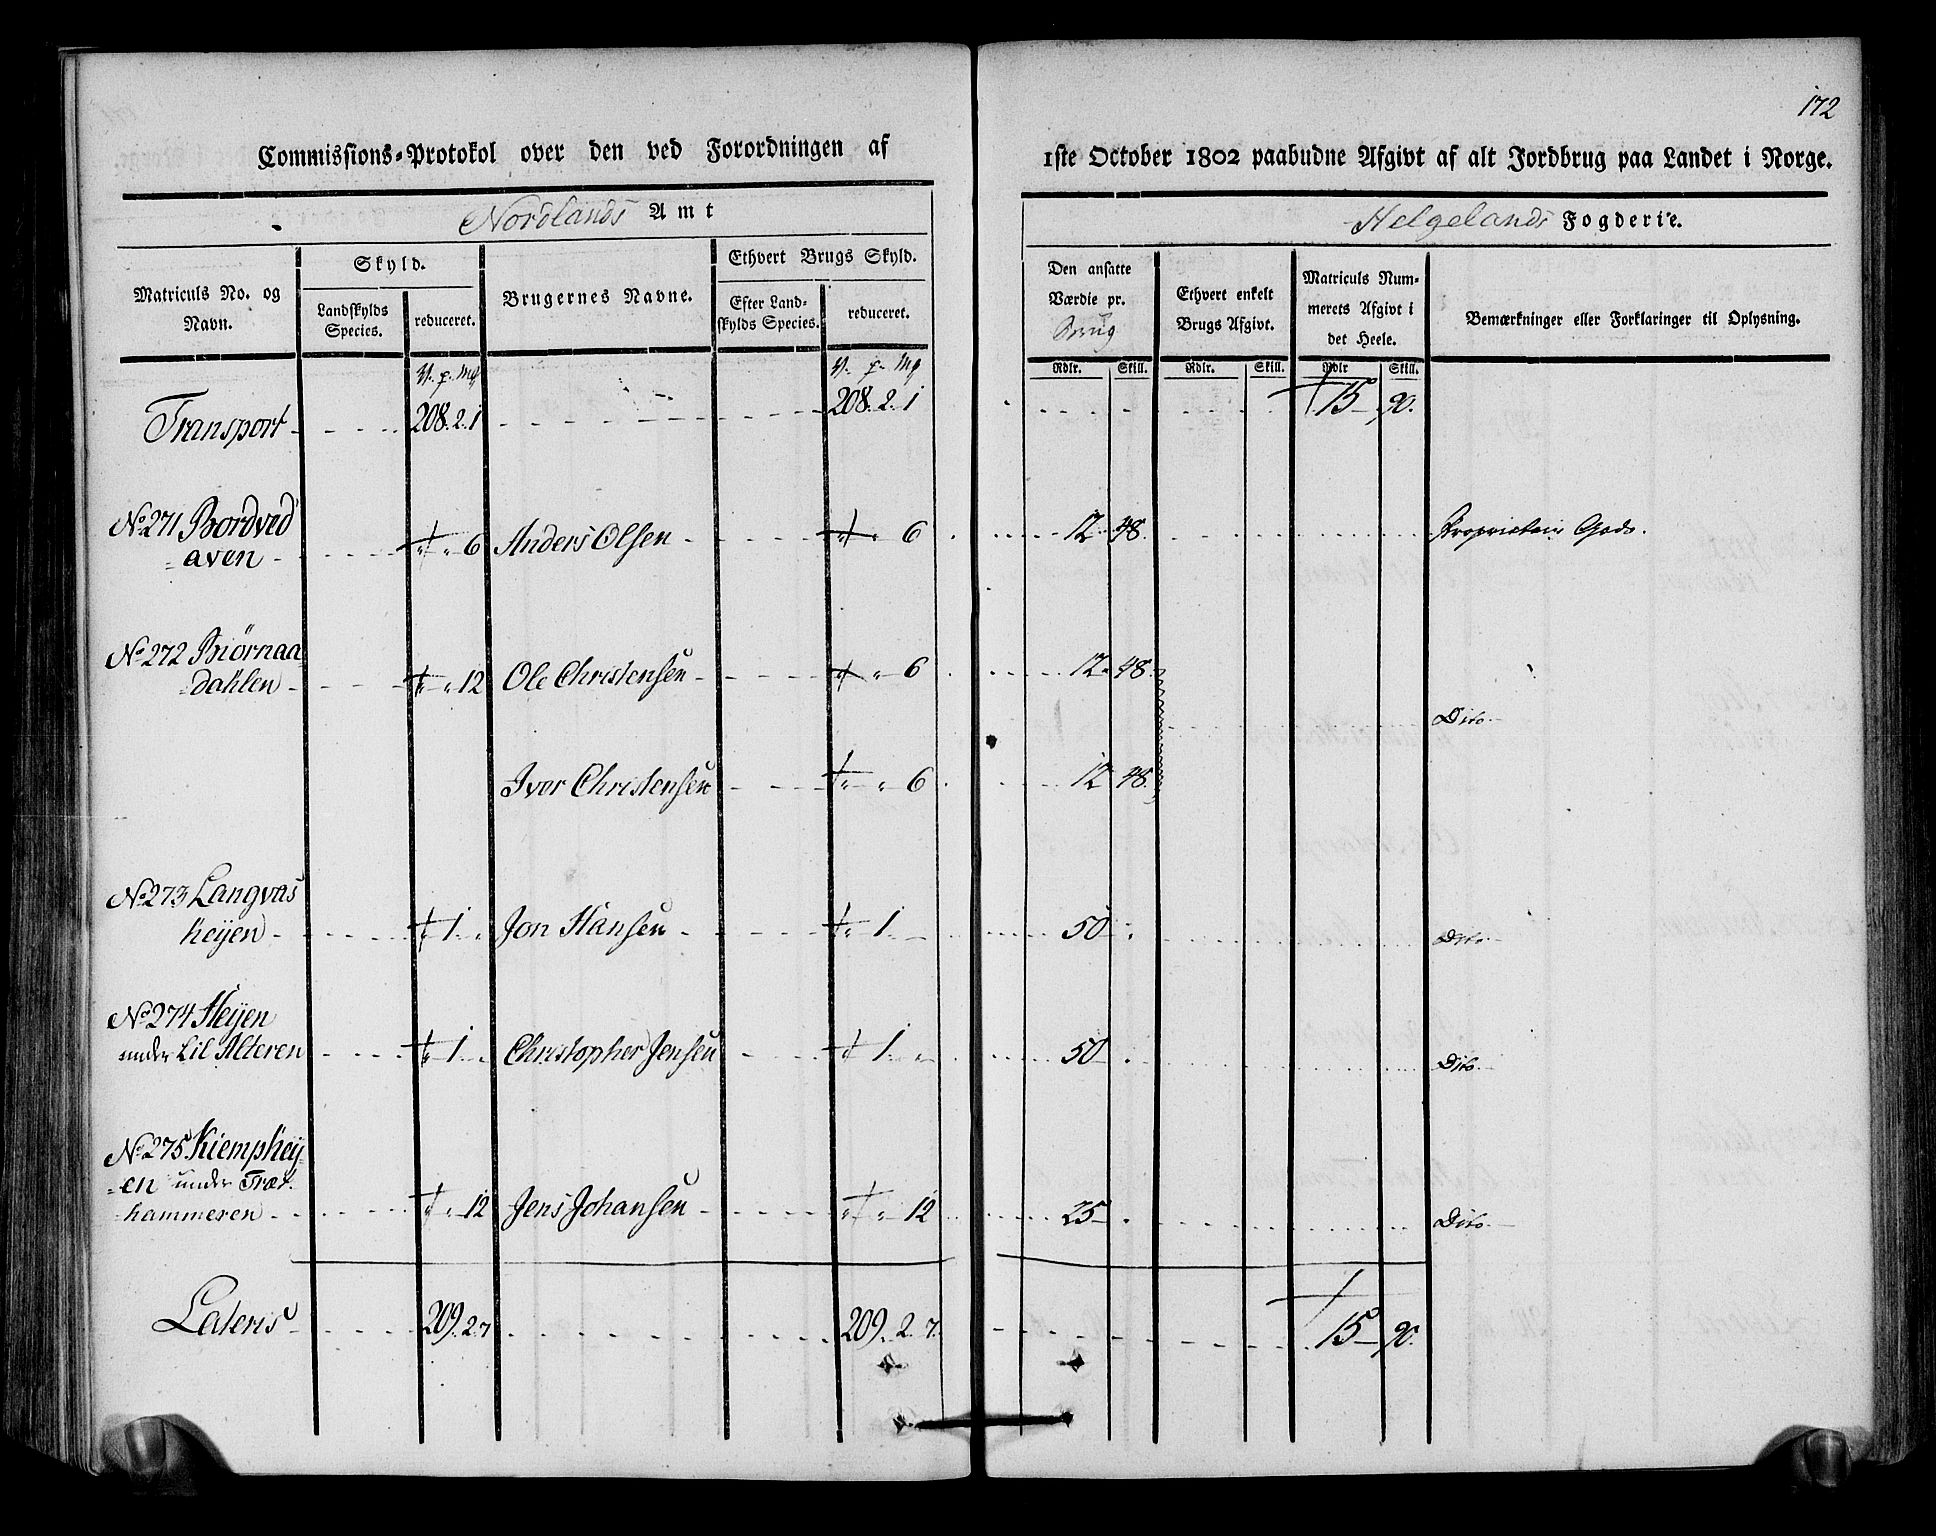 172
Commissions-Protokol over den ved Forordningen af 1ste October 1802 paabudne Afgivt af alt Jordbrug paa Landet i Norge.
Nordlands Amt Helgelands Fogderie.
Matriculs No. og Navn. Skyld. Landskylds Species. reduceret. Brugernes Navne. Ethvert Brugs Skyld. Efter Landskylds Species. reduceret. Den ansatte Værdie pr. Brug Ethvert enkelt Brugs Afgivt. Matriculs Nummerets Afgivt i det Heele. Bemærkninger eller Forklaringer til Oplysning.
V. p. Mg V. p. Mg Rdlr. Skill. Rdlr. Skill. Rdlr Skill.
Transport 208. 2. 1 208. 2. 1 15 90.
No 271 Bordved
aven 6 Anders Olsen 6 12 48. Proprietair Gods.
No 272 Biørnaa
dahlen 12 Ole Christensen 6 12 48.
Dito
Iver Christensen 6 12 48.
No 273 Langvas
heyen 1 Jon Hansen 1 50 Dito
No 274 Heyen
under Lil Alteren 1 Christopher Jensen 1 50 Dito
No 275 Kiemphey
en under Træt
hammeren 12 Jens Johansen 12 25 Dito
Lateris 209. 2. 7 209. 2. 7. 15 90.